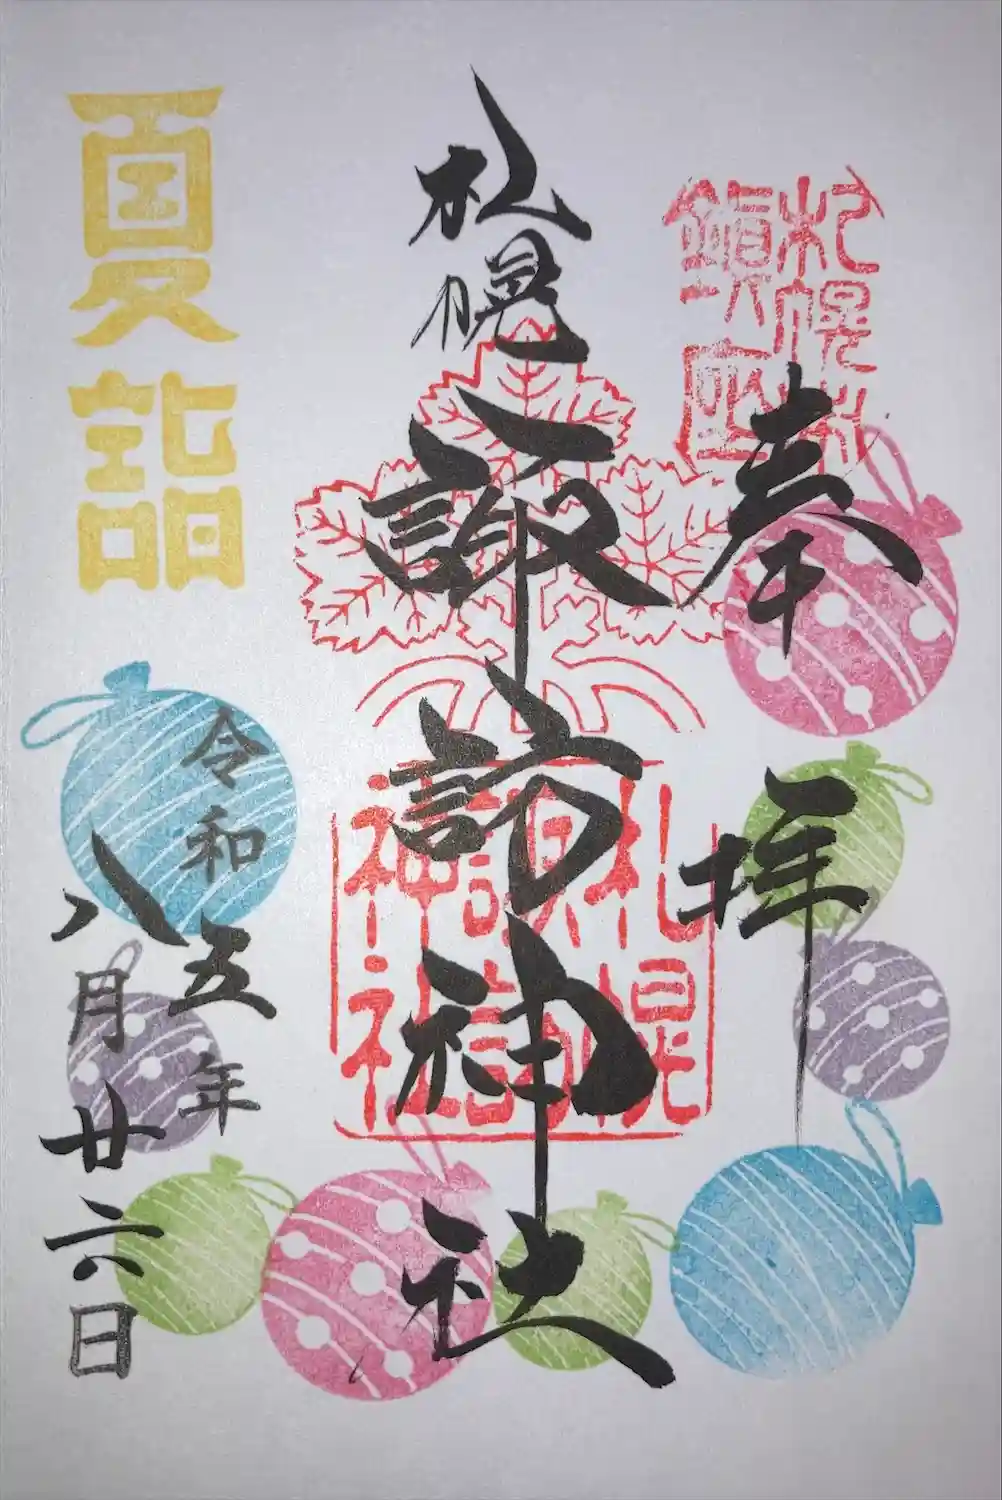 奉拝
札幌諏訪神社
札幌諏訪神社
令和五年
八月廿六日
夏詣